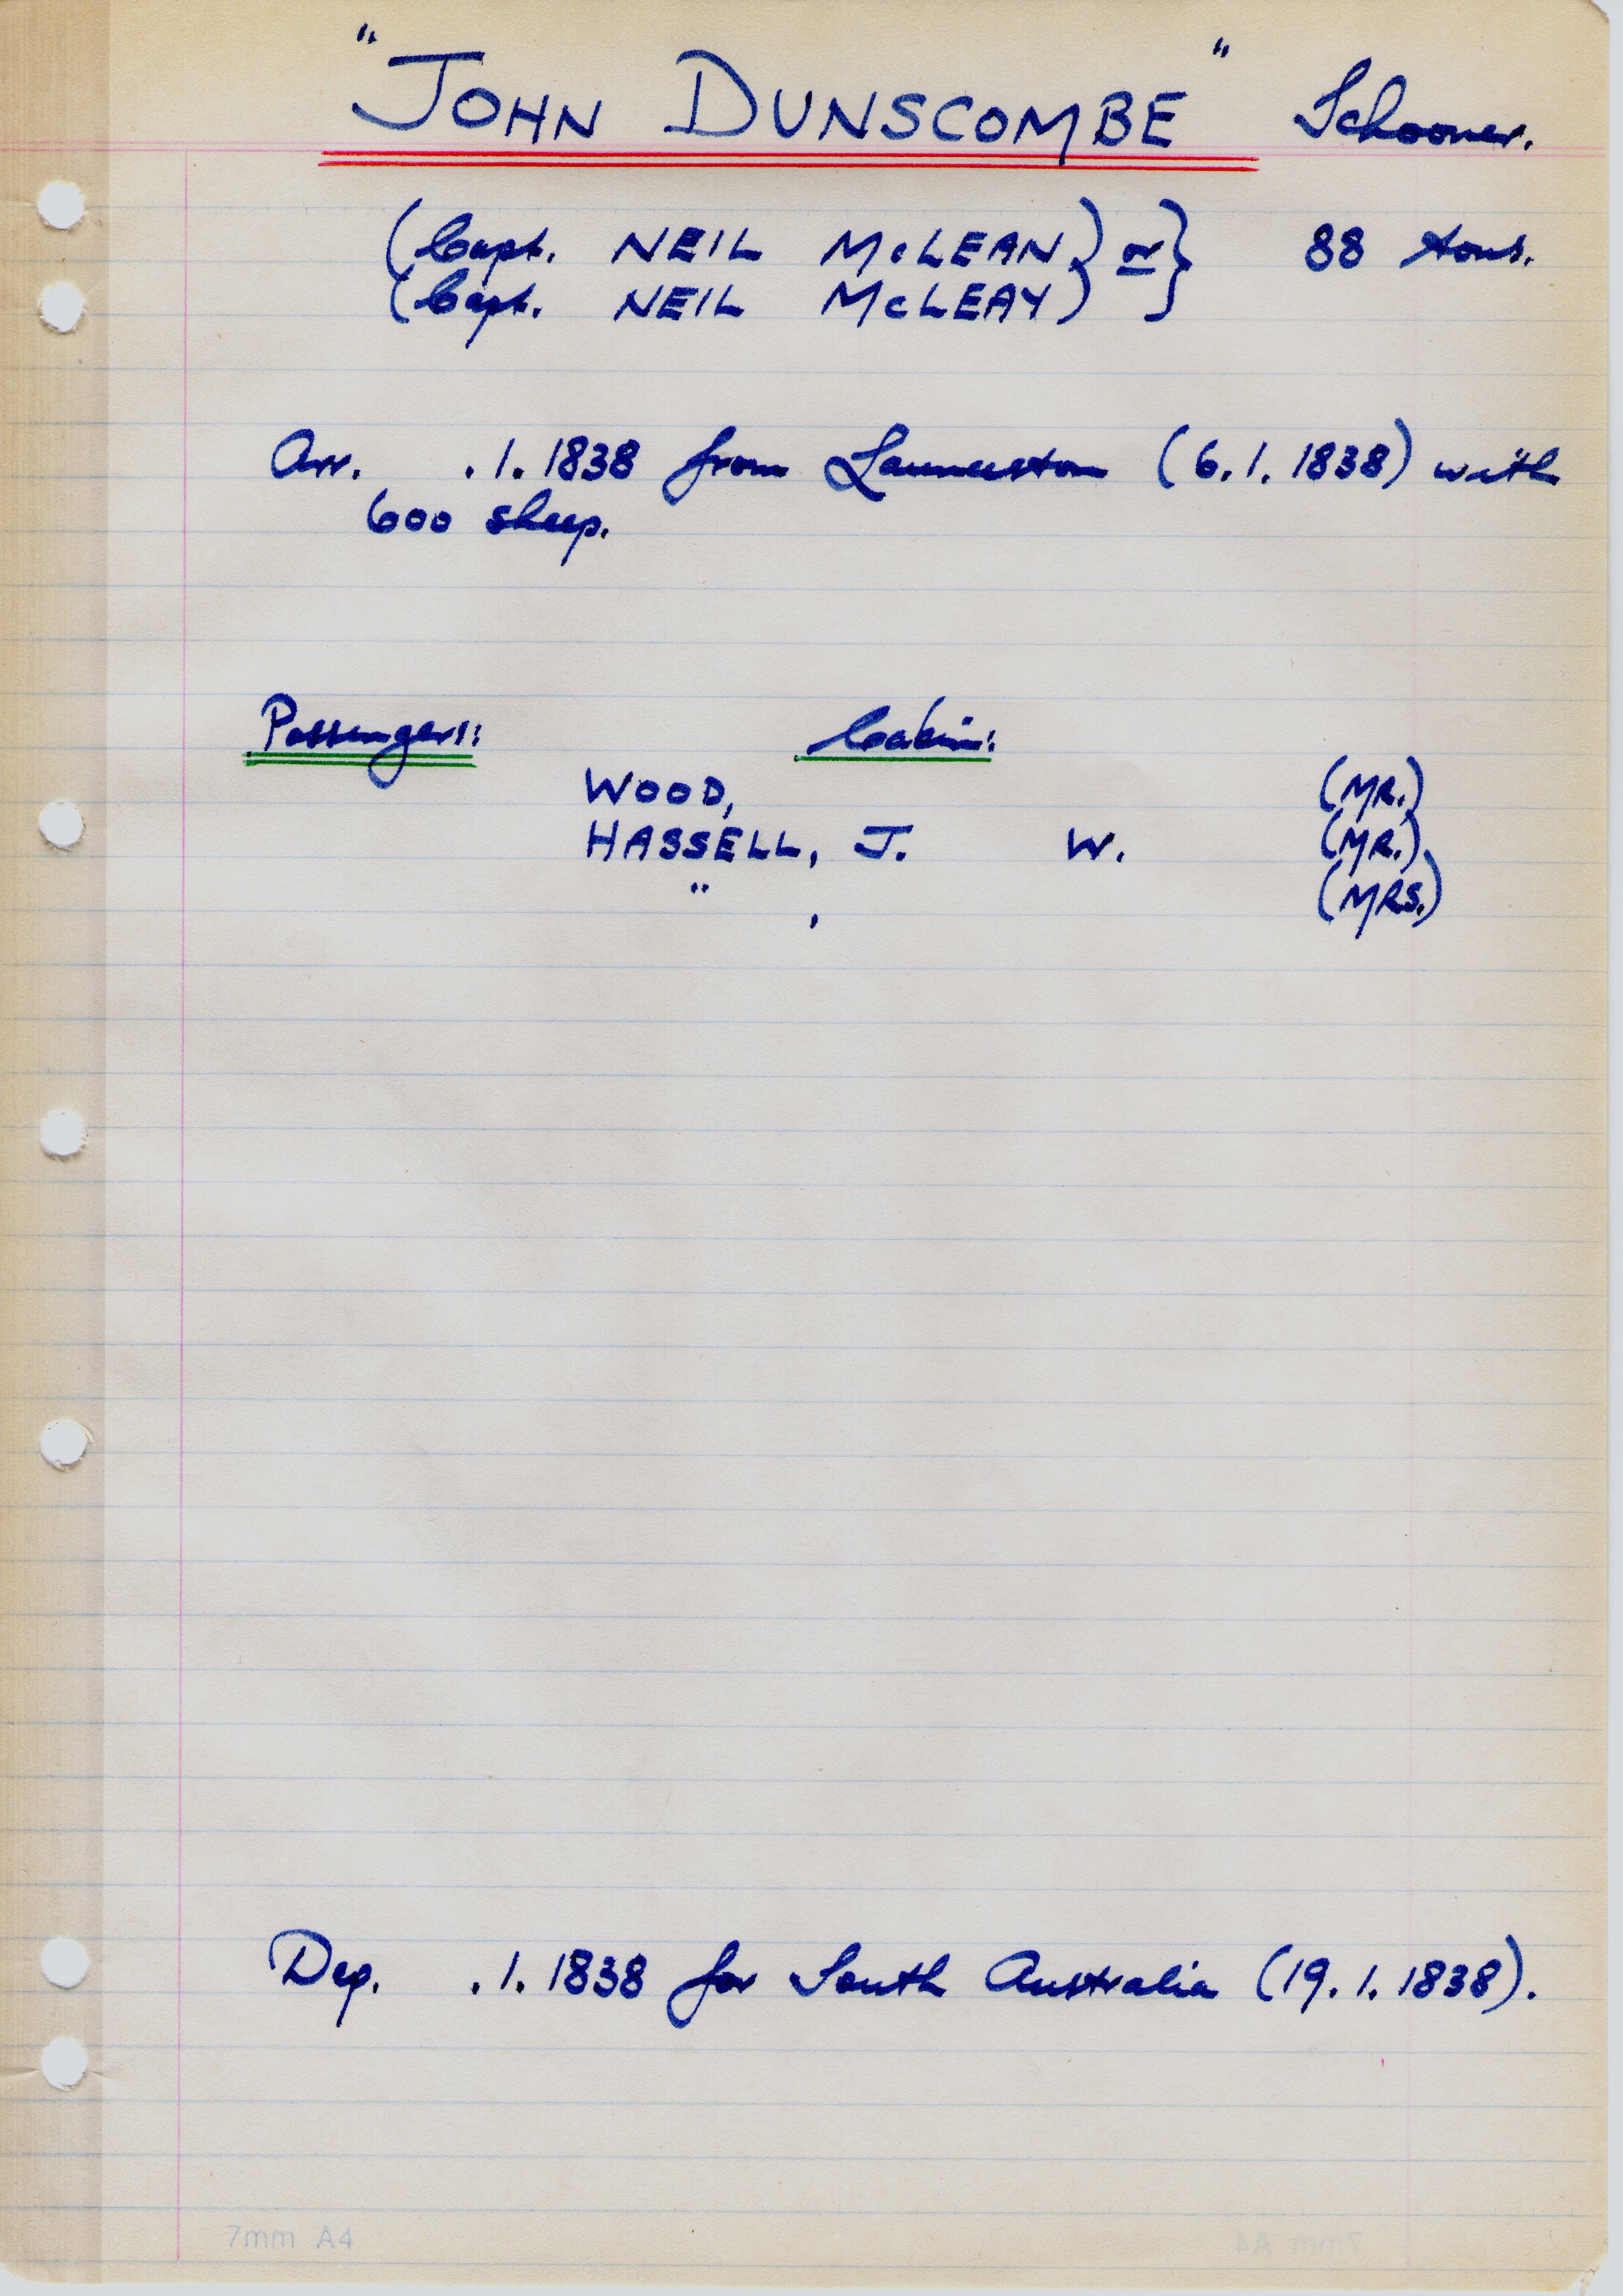 "JOHN DUNSCOMBE" Schooner.
(Capt. NEIL McLEAN) or } 88 tons.
(Capt. NEIL McLEAY) }
Arr. .1.1838 from Launceston (6.1.1838) with
600 sheep.
Passengers: Cabin:
WOOD, (MR.)
HASSELL, J. W. (MR.)
" , (MRS.)
Dep. .1.1838 for South Australia (19.1.1838).
7mm A4